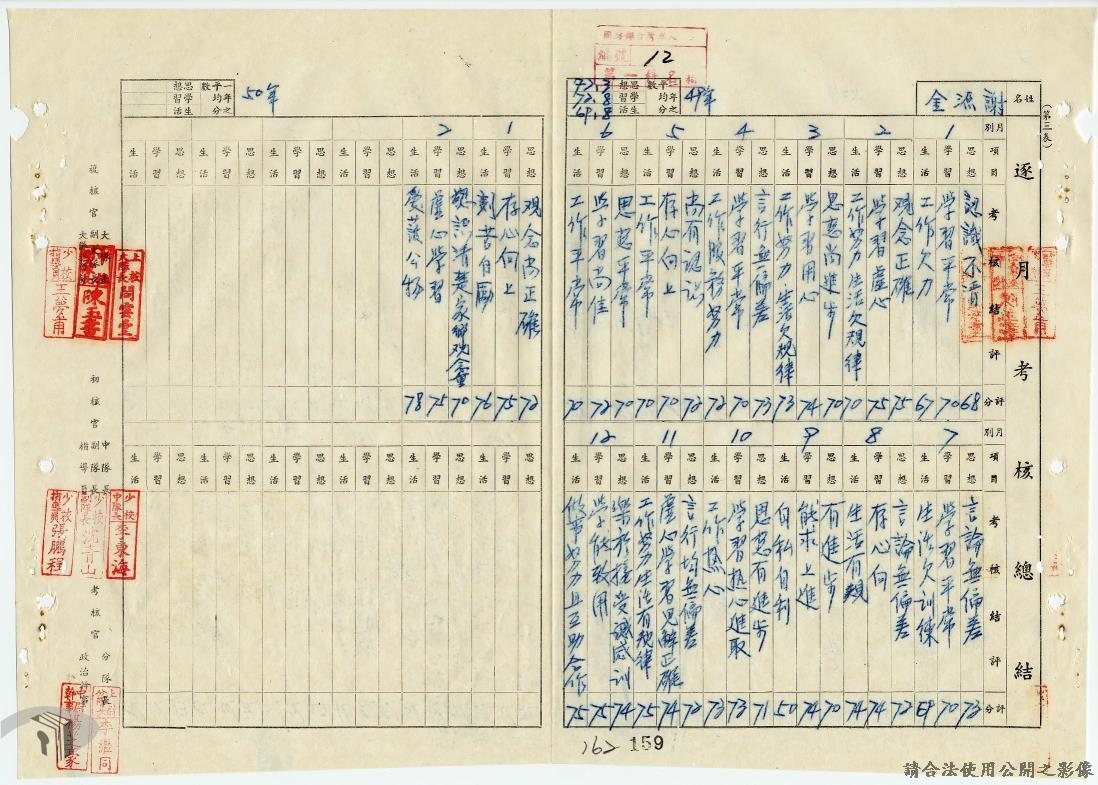 (第三表)
逐月考核總結
姓名
謝添金
12
49年
一年之平均分數
思想 72.3
學習 72.8
生活 69.8
月別
項目
考核結評
評分
1
思想 認識不清 68
學習 學習平常 70
生活 工作欠力 67
2
思想 观念正確 75
學習 學習虛心 75
生活 工作努力生活欠規律 70
3
思想 思想尚進步 70
學習 學習用心 74
生活 工作努力生活欠規律 73
4
思想 言行無偏差 73
學習 學習平常 70
生活 工作服務努力 72
5
思想 尚有認識 72
學習 存心向上 70
生活 工作平常 70
6
思想 思想平常 70
學習 學習尚佳 72
生活 工作平常 70
月別
項目
考核結評
評分
7
思想 言論無偏差 73
學習 學習平常 70
生活 生活欠訓練 69
8
思想 言論無偏差 72
學習 存心向 74
生活 生活有規 74
9
思想 有進步 70
學習 能求上進 74
生活 自私自利 50
10
思想 思想有進步 71
學習 學習热心進取 73
生活 工作热心 73
11
思想 言行均無偏差 72
學習 虛心學習見解正確 74
生活 工作努力生活有規律 75
12
思想 樂於接受誠感訓 74
學習 學能致用 75
生活 做事努力且互助合作 75
50年
一年之平均分數
思想
學習
生活
1
思想 观念尚正確 72
學習 存心向上 75
生活 刻苦自勵 76
2
思想 認識清楚家鄉观念重 70
學習 虛心學習 75
生活 愛護公物 78
複核官
大隊長
副大隊長
初核官
中隊長
副隊長
指導員
考核官
分隊長
政治幹事
少校
中隊長 李東海
少校
指導員 張鵬程
162
159
請合法使用公開之影像